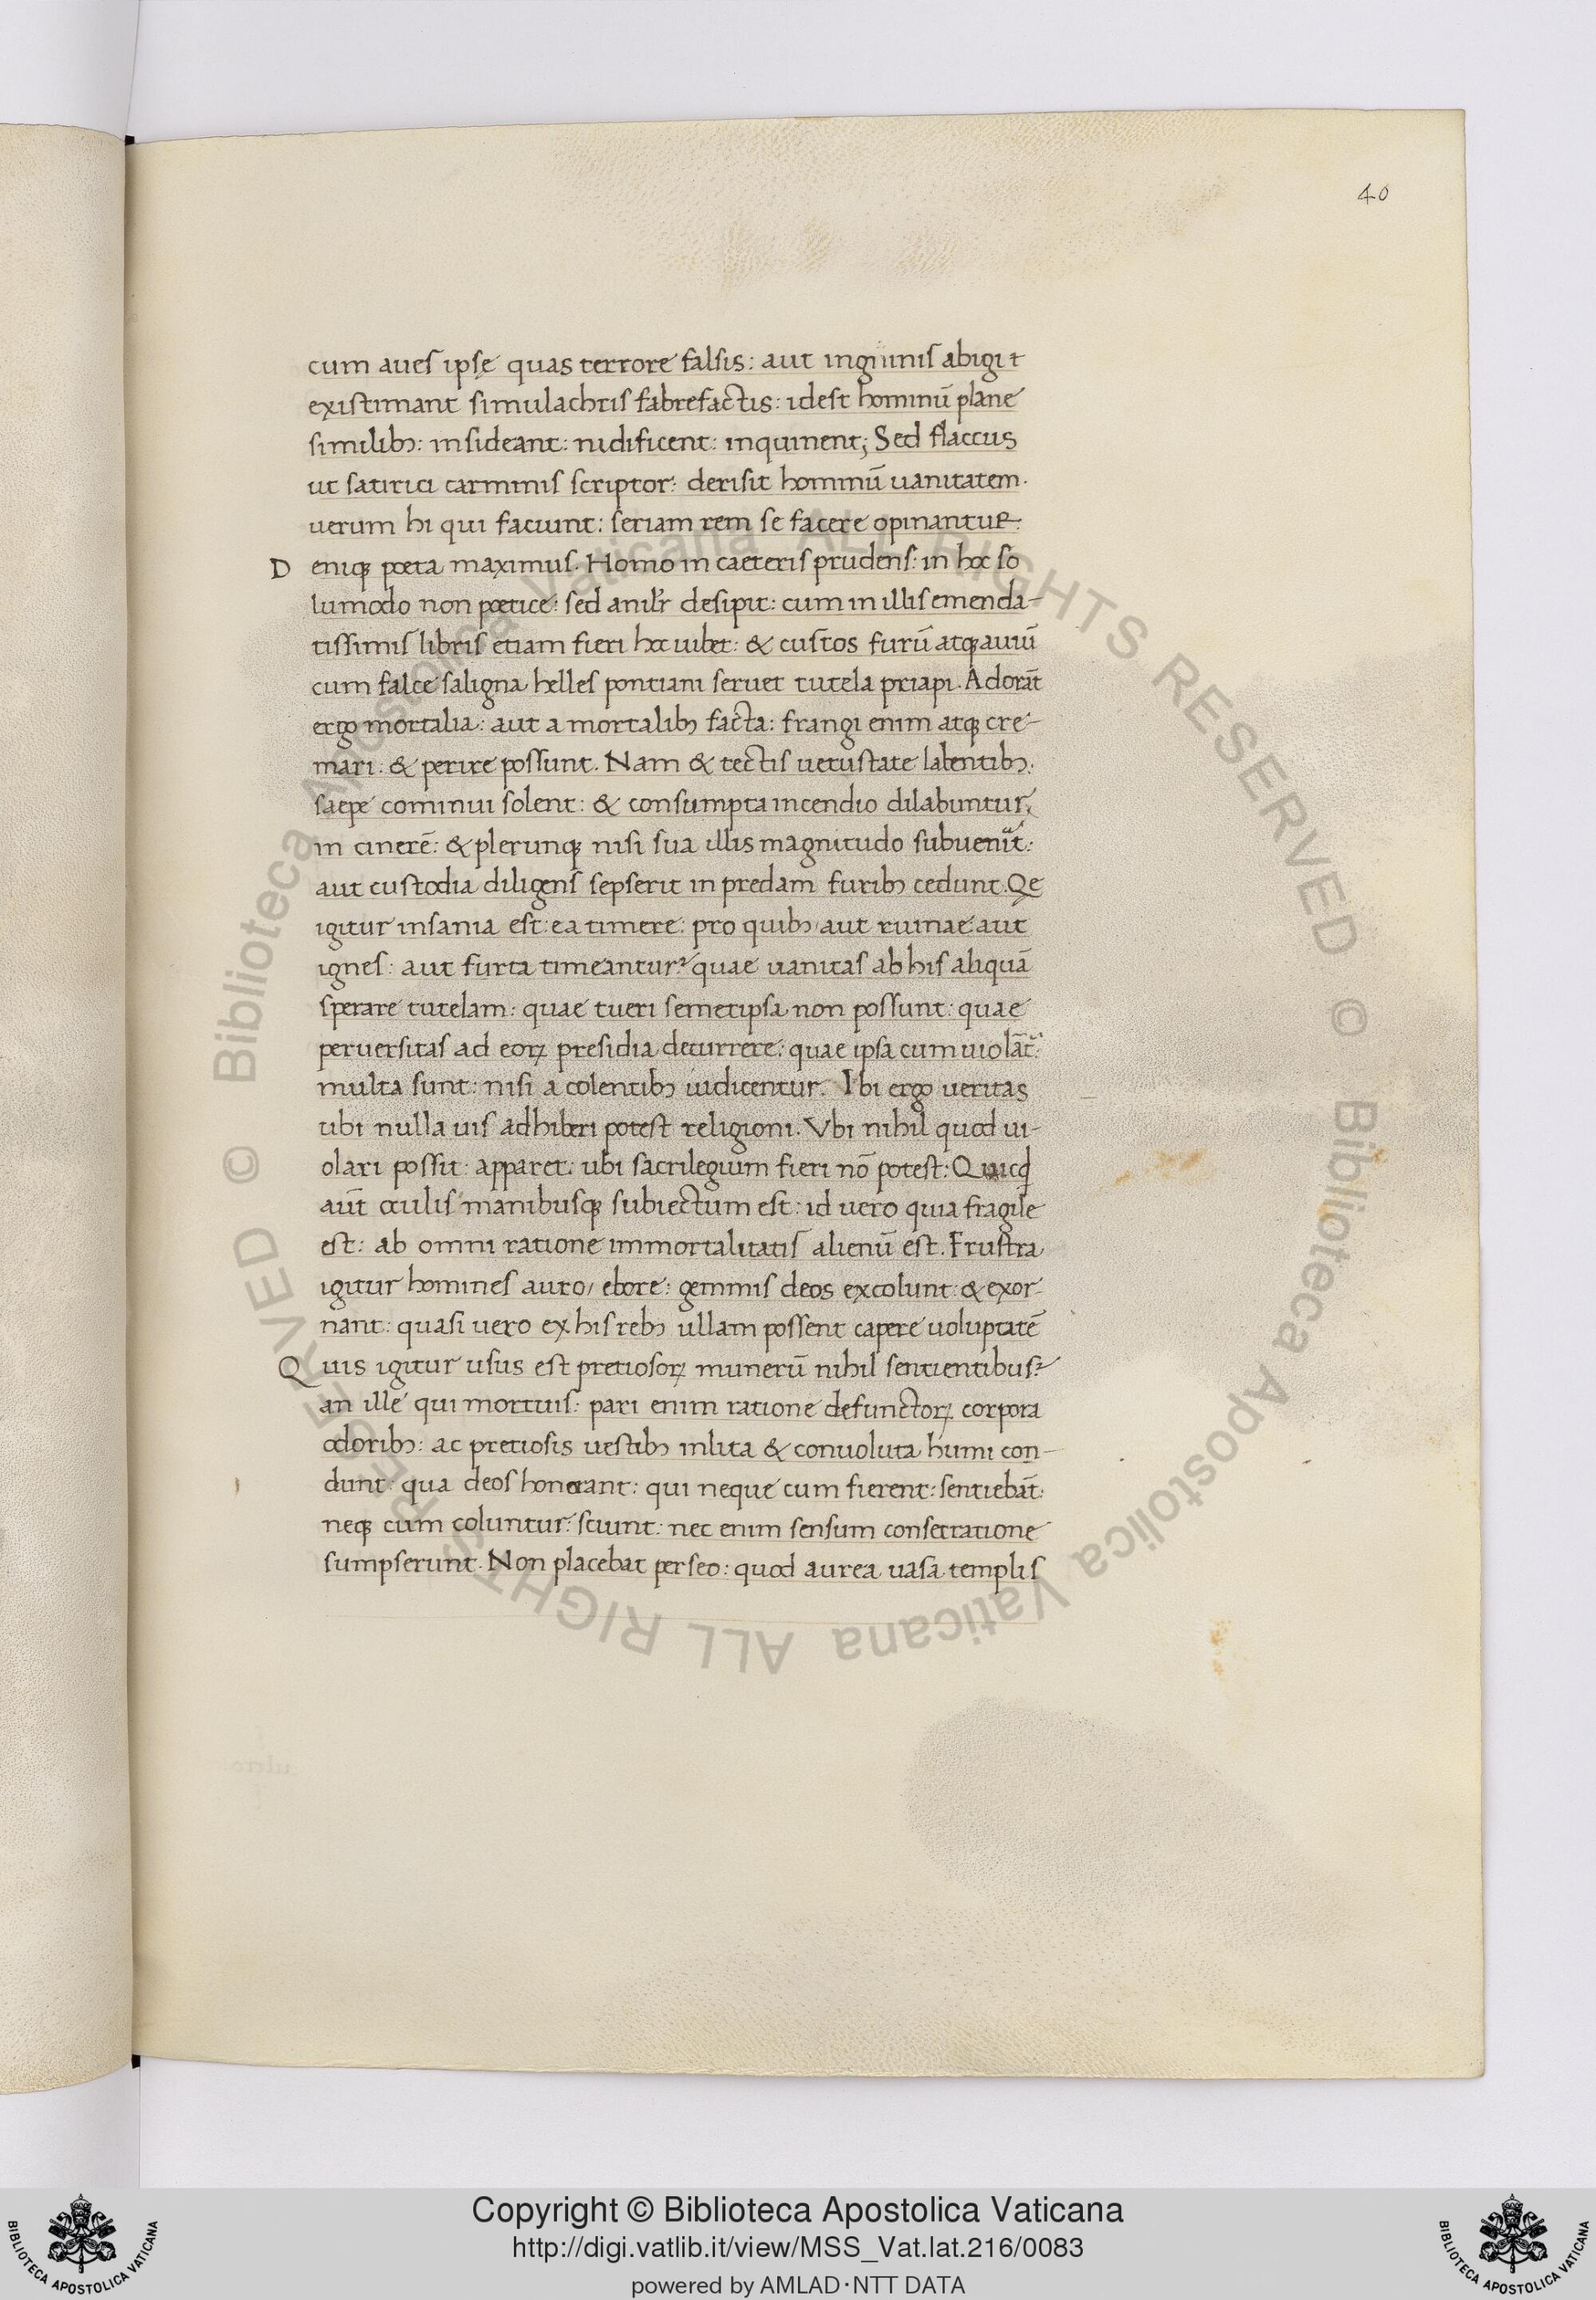 40
cum aues ipsę quas terrore falsis: aut inguinis abigit
existimant simulachris fabrefactis: idest hominū plane
similibꝫ: insideant: nidificent: inquinent; Sed flaccus
ut satirici carminis scriptor: derisit hominū uanitatem.
uerum hi qui faciunt: seriam rem se facere opinantur.
Deniqꝫ poeta maximus. Homo in caeteris prudens: in hoc so
lumodo non poetice: sed anilr̄ desipit: cum in illis emenda-
tissimis libris etiam fieri hoc iubet: & custos furū atqꝫ auiū
cum falce saligna helles pontiani seruet tutela priapi. Adorāt
ergo mortalia: aut a mortalibꝫ facta: frangi enim atqꝫ cre-
mari: & perire possunt. Nam & tectis uetustate labentibꝫ:
saepe cominui solent: & consumpta incendio dilabuntur,
in cinerē: & plerunqꝫ nisi sua illis magnitudo subuenīt:
aut custodia diligens sepserit in predam furibꝫ cedunt. Qę
igitur insania est: ea timere: pro quibꝫ aut ruinae aut
ignes: aut furta timeantur? quae uanitas ab his aliquā
sperare tutelam: quae tueri semetipsa non possunt: quae
peruersitas ad eoꝝ presidia decurrere: quae ipsa cum uiolāt᷑:
multa sunt: nisi a colentibꝫ uidicentur. Ibi ergo ueritas
ubi nulla uis adhiberi potest religioni. Vbi nihil quod ui-
olari possit: apparet: ubi sacrilegium fieri nō potest: Quicqd
aūt oculis manibusqꝫ subiectum est: id uero quia fragile
est: ab omni ratione immortalitatis alienū est. Frustra
igitur homines auro, ebore: gemmis deos excolunt: & exor-
nant: quasi uero ex his rebꝫ ullam possent capere uoluptatē
Quis igitur usus est pretiosoꝝ munerū nihil sentientibus?
an ille qui mortuis: pari enim ratione defunctoꝝ corpora
odoribꝫ: ac pretiosis uestibꝫ inlita & conuoluta humi con-
dunt: qua deos honorant: qui neque cum fierent: sentiebāt:
neqꝫ cum coluntur: sciunt: nec enim sensum consecratione
sumpserunt. Non placebat perseo: quod aurea uasa templis
© Biblioteca Apostolica Vaticana ALL RIGHTS RESERVED © Biblioteca Apostolica Vaticana ALL RIGHTS RESERVED
Copyright © Biblioteca Apostolica Vaticana
http://digi.vatlib.it/view/MSS_Vat.lat.216/0083
powered by AMLAD·NTT DATA
BIBLIOTECA APOSTOLICA VATICANA
BIBLIOTECA APOSTOLICA VATICANA